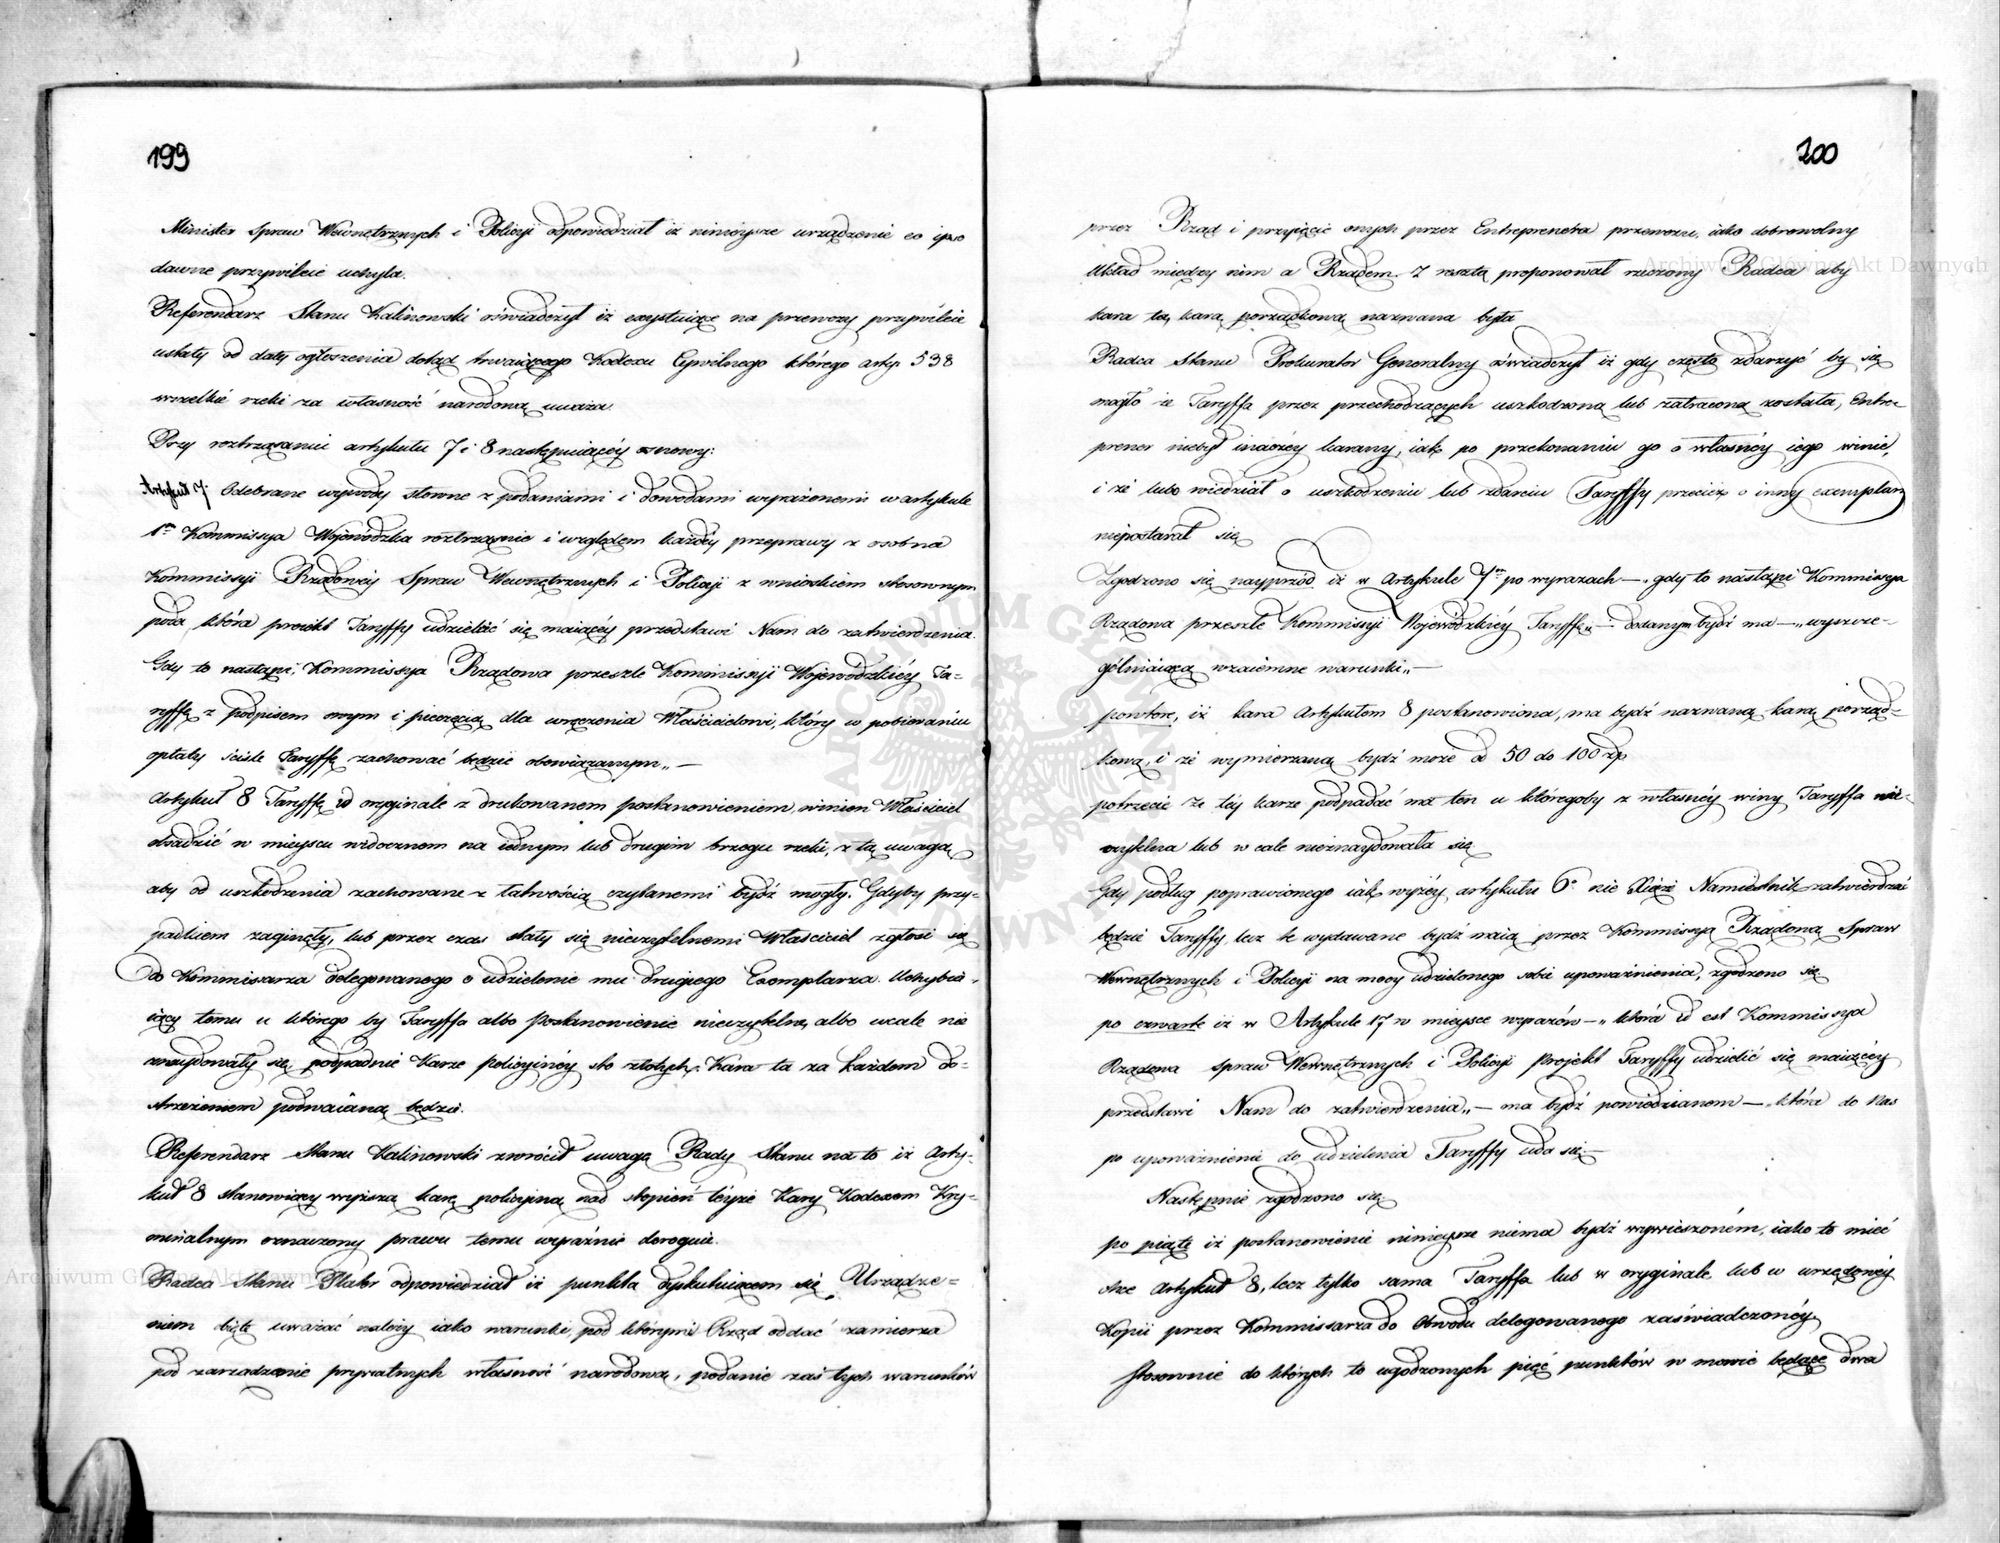 199
Minister Spraw Wewnętrznych i Policyi odpowiedział iż ninieysze urządzenie eo ipso
dawne przywileie uchyla.
Referendarz Stanu Kalinowski oświadczył iż exystuiące na przewozy przywileie
ustały od daty ogłoszenia dotąd trwaiącego Kodexu Cywilnego którego arty. 538
wszelkie rzeki za własność narodową uważa.
Przy roztrząsaniu artykułu 7 i 8 następuiącéy osnowy:
Artykuł 7 Odebrane wywody słowne z podaniami i dowodami wyrażonemi w artykule
1m Kommissya Woiewódzka roztrząśnie i względem każdéy przeprawy z osobna
Kommissyi Rządowéy Spraw Wewnętrznych i Policyi z wnioskiem stosownym
poda, która proiekt Taryffy udzielić się maiącéy przedstawi Nam do zatwierdzenia.
Gdy to nastąpi, Kommissya Rządowa prześle Kommissyi Woiewódzkiéy Ta-
ryffę z podpisem swym i pieczęcią dla wręczenia Właścicielowi, który w pobieraniu
opłaty ściśle Taryffę zachować będzie obowiązanym„ —
Artykuł 8 Taryffę w oryginale z drukowanem postanowieniem, winien Właściciel
osadzić w mieyscu widocznem na iednym lub drugim brzegu rzeki, z tą uwagą,
aby od uszkodzenia zachowane z łatwością czytanemi bydź mogły. Gdyby przy-
padkiem zaginęły, lub przez czas stały się nieczytelnemi Właściciel zgłosi się
do Kommissarza delegowanego o udzielenie mu drugiego Exemplarza. Uchybia-
iący temu u którego by Taryffa albo Postanowienie nieczytelne, albo wcale nie
znaydowały się, podpadnie Karze policyinéy sto złotych. Kara ta za każdem do-
strzeżeniem podwaianą będzie.
Referendarz Stanu Kalinowski zwrócił uwagę Rady Stanu na to iż Arty-
kuł 8 stanowiący wyższą karę policyiną nad stopień téyże Kary Kodexem Kry-
minalnym oznaczony prawu temu wyraźnie deroguie.
Radca Stanu Plater odpowiedział iż punkta dyskutuiącem się Urządze=
niem obięte uważać należy iako warunki, pod którymi Rząd oddać zamierza
pod zarządzenie prywatnych własność narodową, podanie zaś tych warunków
200
przez Rząd i przyięcie onych przez Entreprenera przewozu, iako dobrowolny
układ między nim a Rządem. Z resztą proponował rzeczony Radca aby
kara ta, karą porządkową nazwana była
Radca Stanu Prokurator Generalny oświadczył iż gdy często zdarzyć by się
mogło iż Taryffa przez przechodzących uszkodzoną lub zatraconą została, Entre-
prener niebył inaczéy karany, iak po przekonaniu go o własnéy iego winie,
i że lubo wiedział o uszkodzeniu lub zdarciu Taryffy przecież o inny exemplarz
niepostarał się
Zgodzono się nayprzód iż w Artykule 7m po wyrazach —„ gdy to nastąpi Kommissya
Rządowa prześle Kommissyi Woiewódzkiéy Taryffę„ — dodanym bydź ma —„ wyszcze-
gólniaiącą wzaiemne warunki„ —
powtóre, iż kara Artykułem 8 postanowiona, ma bydź nazwaną karą porząd-
kową, i że wymierzaną bydź może od 50 do 100 złp
potrzecie że téy karze podpadać ma ten u któregoby z własnéy winy Taryffa nie-
czytelna lub w cale nieznaydowała się
Gdy podług poprawionego iak wyżéy artykułu 6o nie Xiąże Namiestnik zatwierdzać
będzie Taryffy, lecz te wydawane bydź maią przez Kommissyą Rządową Spraw
Wewnętrznych i Policyi na mocy udzielonego sobie upoważnienia, zgodzono się
po czwarte iż w Artykule 17 w mieysce wyrazów —„ która id est Kommissya
Rządowa spraw Wewnętrznych i Policyi Projekt Taryffy udzielić się maiącéy
przedstawi Nam do zatwierdzenia„ — ma bydź powiedzianem —„ która do Nas
po upoważnienie do udzielenia Taryffy uda się —
Następnie zgodzono się
po piąte iż postanowienie ninieysze niema bydź wywieszoném, iako to mieć
chce Artykuł 8, lecz tylko sama Taryffa lub w oryginale, lub w urzędowéy
Kopii przez Kommissarza do Obwodu delegowanego zaświadczonéy
Stosownie do których to ugodzonych pięć punktów w mowie będące dwa